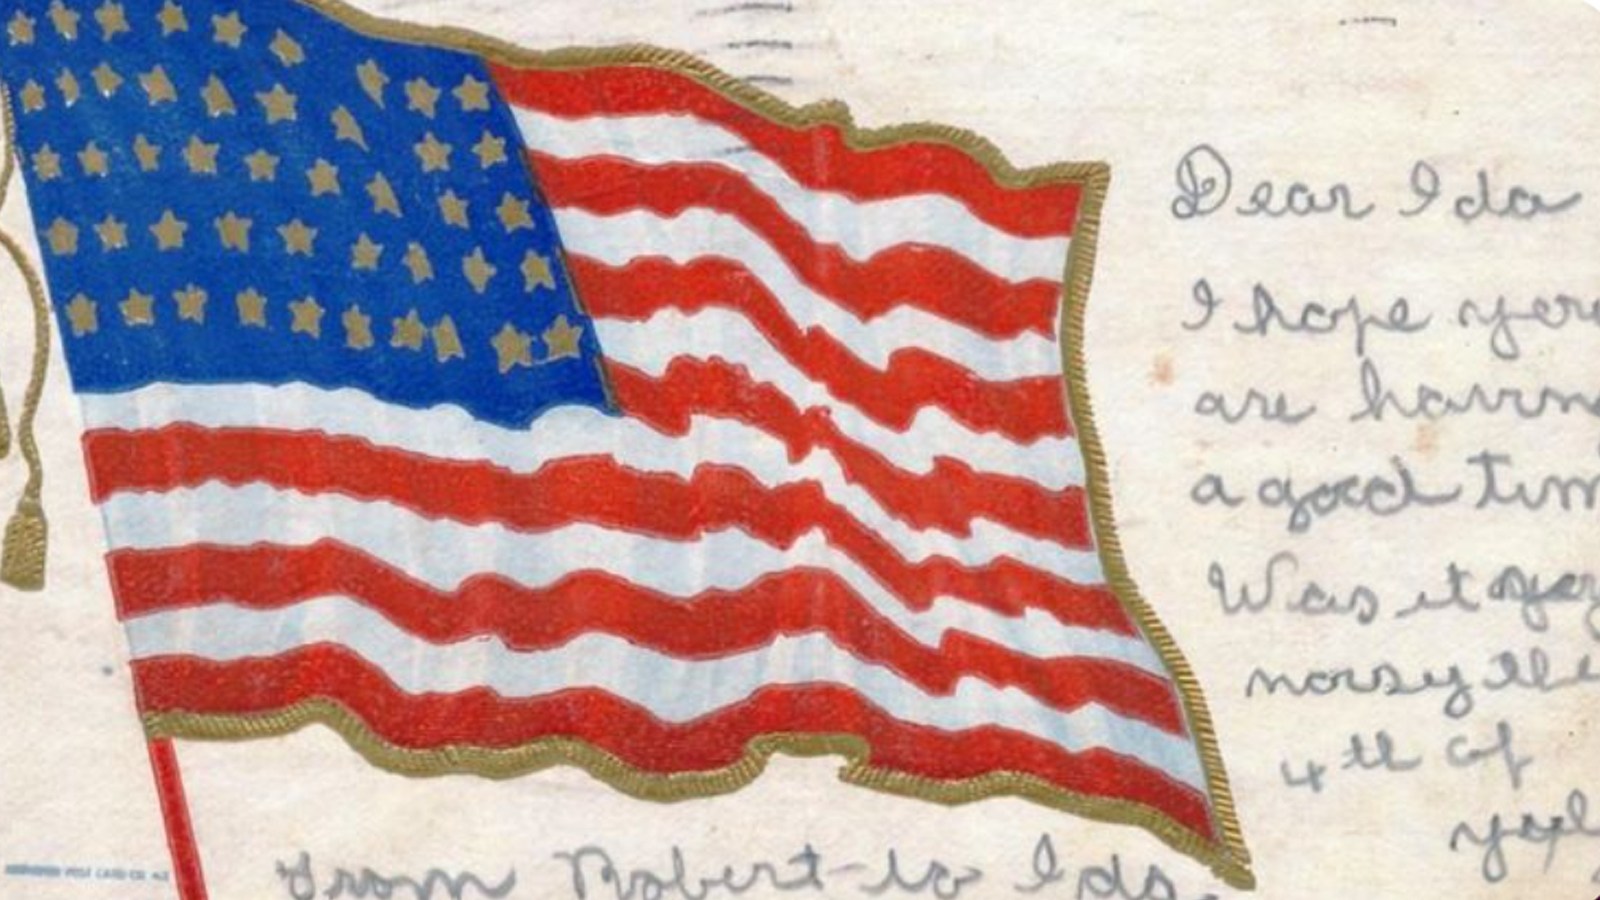 Dear Ida
I hope you
are having
a good tim
Was it very
noisy the
4th of
from Robert to Ida.
POST CARD CO.